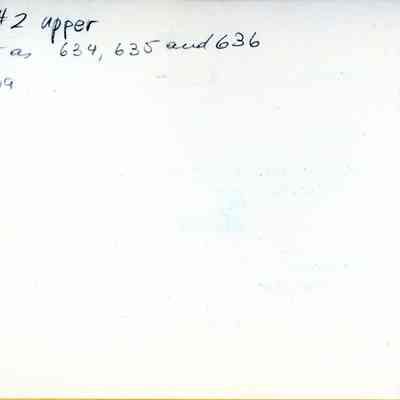 #2 upper
as 634, 635 and 636